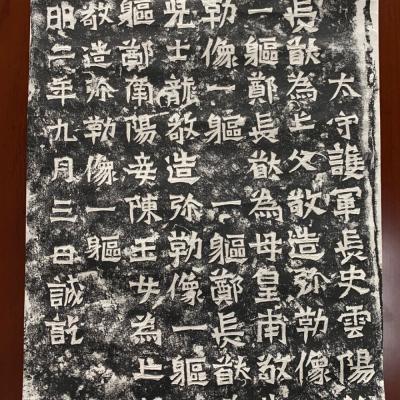 太守護軍長史雲陽
長猷為亡父敬造弥勒像
一軀鄭長猷為母皇甫敬
勒像一軀一軀鄭長猷
児士龍敬造弥勒像一軀
軀鄭南陽妾陳玉女為亡
敬造弥勒像一軀
明二年九月三日誡訖